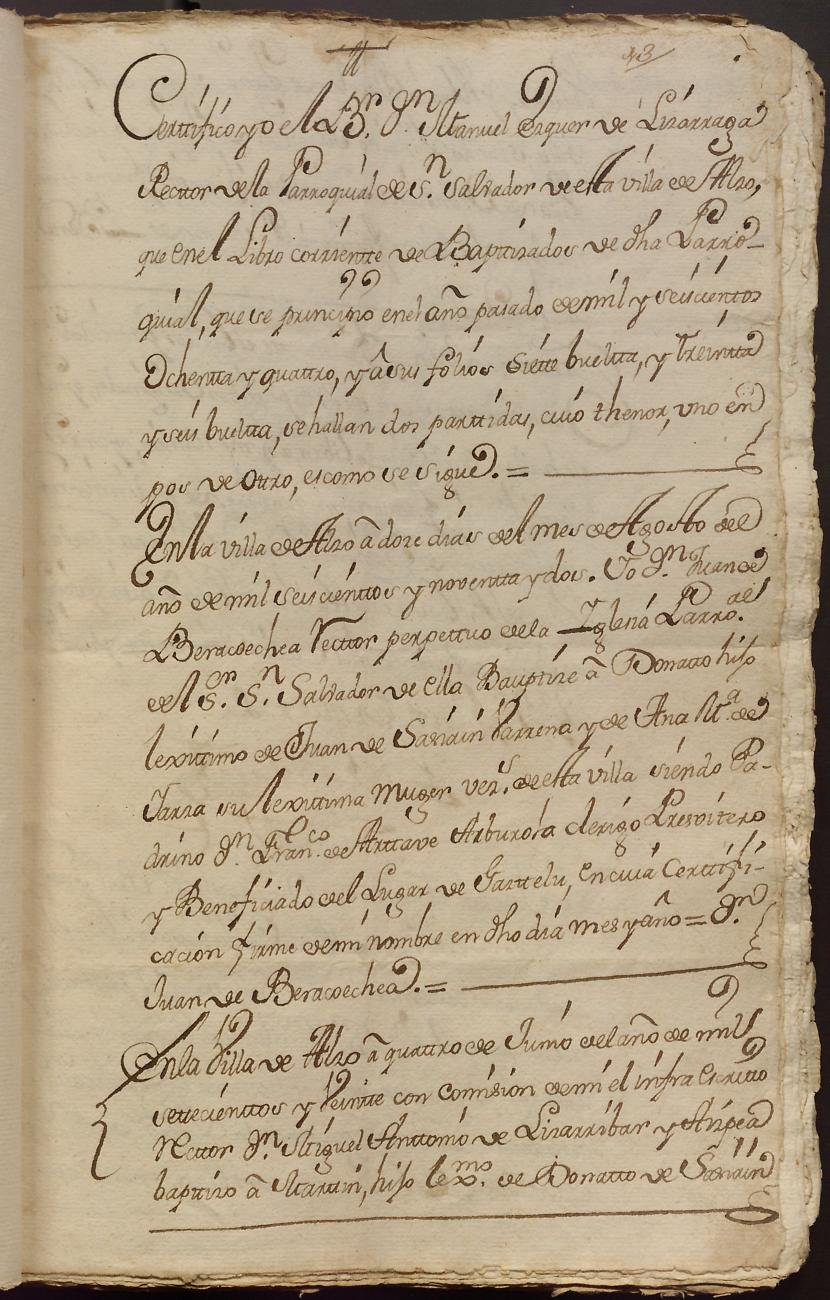 13
Certtifico yo el Br. Dn. Manuel Ezquer de Lizarraga
Recttor de la Parroquial de Sn. Salvador de esta villa de Alzo,
que en el Libro corrientte de Bapttizados de dha Parro-
quial, que se principio en el año pasado de mil y seiscienttos
Ochentta y quattro, y â sus folios Siette buelta, y treintta
y seis bueltta, se hallan dos parttidas, cuio thenor, uno en
pos de Ottro, es como se sigue. =
En la villa de Alzo â doze dias del mes de Agosto del
año de mil seiscienttos y noventta y dos. Yo Dn. Juan de
Beracoechea Recttor perpettuo de la Iglesia Parro.al
del Sr. Sn. Salvador de ella Bauptize â Donatto hijo
lexittimo de Juan de Sasiain Barrena y de Ana Ma. de
Yarza su lexittima Muger vezs. de esta villa siendo Pa-
drino Dn. Franco. de Arttave Arburola clerigo Presvitero
y Beneficiado del Lugar de Gazttelu, en cuia Certtifi-
cacion firme de mi nombre en dho dia mes y año = Dn.
Juan de Beracoechea. =
En la Villa de Alzo â quattro de Junio del año de mil
settecienttos y Veintte con comision de mi el infra escritto
Recttor Dn. Miguel Anttonio de Lizarribar y Aizpea
bapttizo â Marttin, hijo lexmo. de Donatto de Sasiain